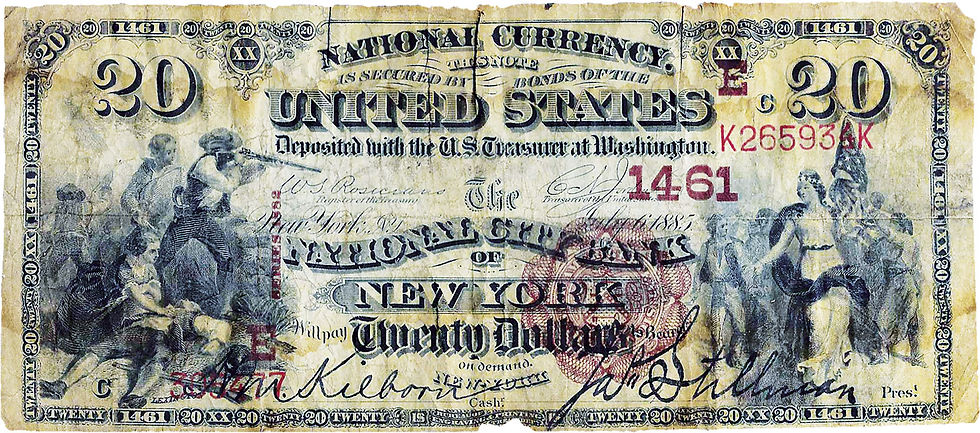 20 1461 20 1461 20
XX XX
NATIONAL CURRENCY.
THIS NOTE
IS SECURED BY BONDS OF THE
20 UNITED STATES 20
E
C
Deposited with the U.S. Treasurer at Washington.
K265934K
W.S. Rosecrans
Register of the Treasury
The
1461
New York,
1885
NATIONAL CITY BANK
OF
NEW YORK
SERIES 1882
Will pay Twenty Dollars to Bearer
on demand.
E
C
NEW YORK
Kilborn
Cash.r
Jas Stillman
Pres.t
TWENTY 1461 20 XX 20 TWENTY TWENTY 20 XX 20 1461 TWENTY